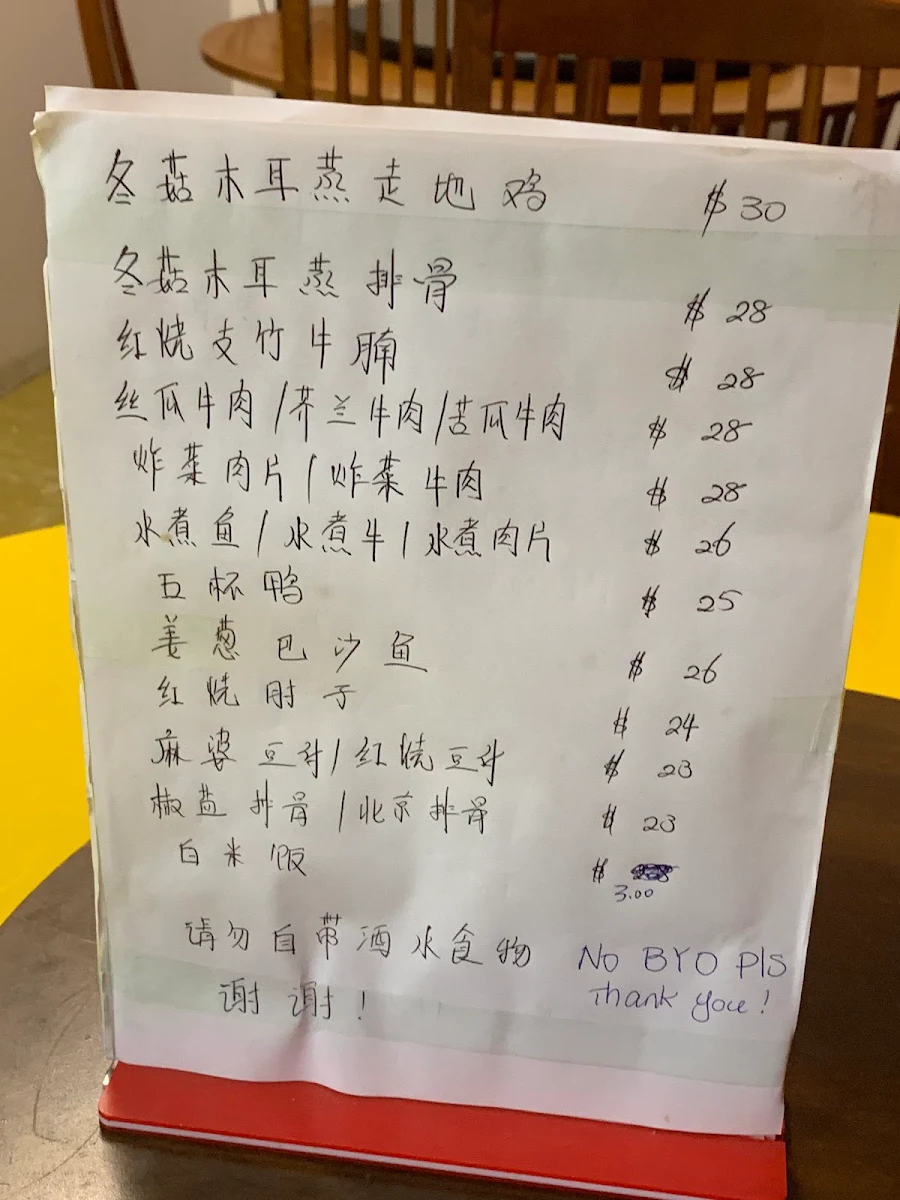 冬菇木耳蒸走地鸡 $30
冬菇木耳蒸排骨 $28
红烧支竹牛腩 $28
丝瓜牛肉/芥兰牛肉/苦瓜牛肉 $28
炸菜肉片/炸菜牛肉 $28
水煮鱼/水煮牛/水煮肉片 $26
五杯鸭 $25
姜葱巴沙鱼 $26
红烧肘子 $24
麻婆豆付/红烧豆付 $23
椒盐排骨/北京排骨 $23
白米饭 $ 3.00
请勿自带酒水食物 No BYO Pls
谢谢! Thank you!